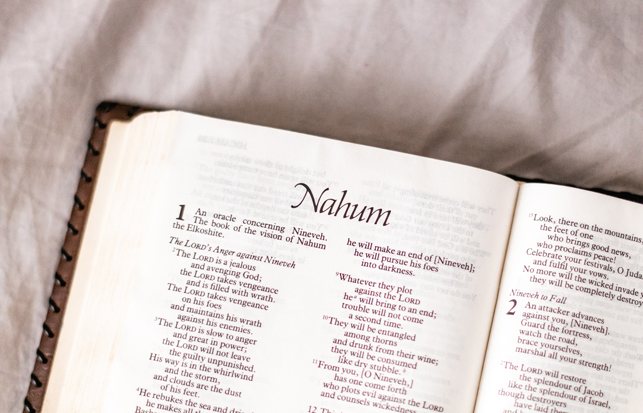 Nahum
1 An oracle concerning Nineveh.
The book of the vision of Nahum
the Elkoshite.
The LORD's Anger against Nineveh
2The LORD is a jealous
and avenging God;
the LORD takes vengeance
and is filled with wrath.
The LORD takes vengeance
on his foes
and maintains his wrath
against his enemies.
3The LORD is slow to anger
and great in power;
the LORD will not leave
the guilty unpunished.
His way is in the whirlwind
and the storm,
and clouds are the dust
of his feet.
4He rebukes the sea and
he makes all
he will make an end of [Nineveh];
he will pursue his foes
into darkness.
9Whatever they plot
against the LORD
he will bring to an end;
trouble will not come
a second time.
10They will be entangled
among thorns
and drunk from their wine;
they will be consumed
like dry stubble.
11From you, [O Nineveh,]
has one come forth
who plots evil against the LORD
and counsels wickedness.
12
15Look, there on the mountains,
the feet of one
who brings good news,
who proclaims peace!
Celebrate your festivals, O
and fulfil your vows.
No more will the wicked invade
they will be completely
Nineveh to Fall
2 An attacker advances
against you, [Nineveh].
Guard the fortress,
watch the road,
brace yourselves,
marshal all your strength!
2The LORD will restore
the splendour of Jacob
like the splendour of Israel,
though destroyers
have laid